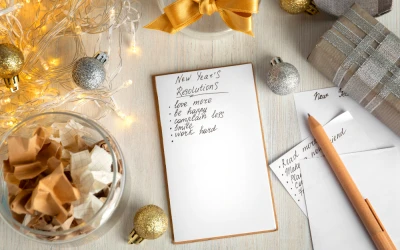 New Year's
Resolutions
• love more
• be happy
• complain less
• smile
• work hard
•
New
Read more
friend